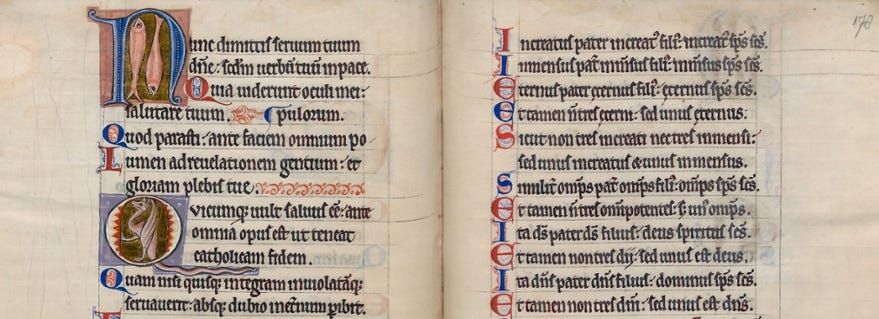 Nunc dimittis seruum tuum
dñe: scdm uerbũ tuũ in pace.
Quia uiderunt oculi mei:
salutare tuum. pulorum.
Quod parasti: ante faciem omnium po
Lumen ad reuelationem gentium: et
gloriam plebis tue
Quicumq; uult saluus eẽ: ante
omnia opus est ut teneat
catholicam fidem.
Quam nisi quisq; integram inuiolatãq;
seruauerit: absq; dubio in et̃num peribit.
178
Increatus pater increatꝰ filiꝰ: increatꝰ sp̃s sc̃s.
Inmensus pat̃ inm̃sus filiꝰ: inmensus sp̃s sc̃s.
Eternus pater ęternus filiꝰ: ęternus sp̃s sc̃s.
Et tamen ñ tres ęterni: sed unus ęternus:
Sicut non tres increati nec tres inmensi:
sed unus increatus & unus inmensus.
Similit̃ om̃ps pat̃ om̃ps filiꝰ: om̃ps sp̃s sc̃s.
Et tamen ñ tres omnipotentes: s; unꝰ om̃ps.
Ita ds̃ pater ds̃ filius: deus spiritus sc̃s.
Et tamen non tres dii: sed unus est deus.
Ita dñs pater dñs filius: dominus sp̃s sc̃s.
Et tamen non tres dñi: sed unus est dñs.